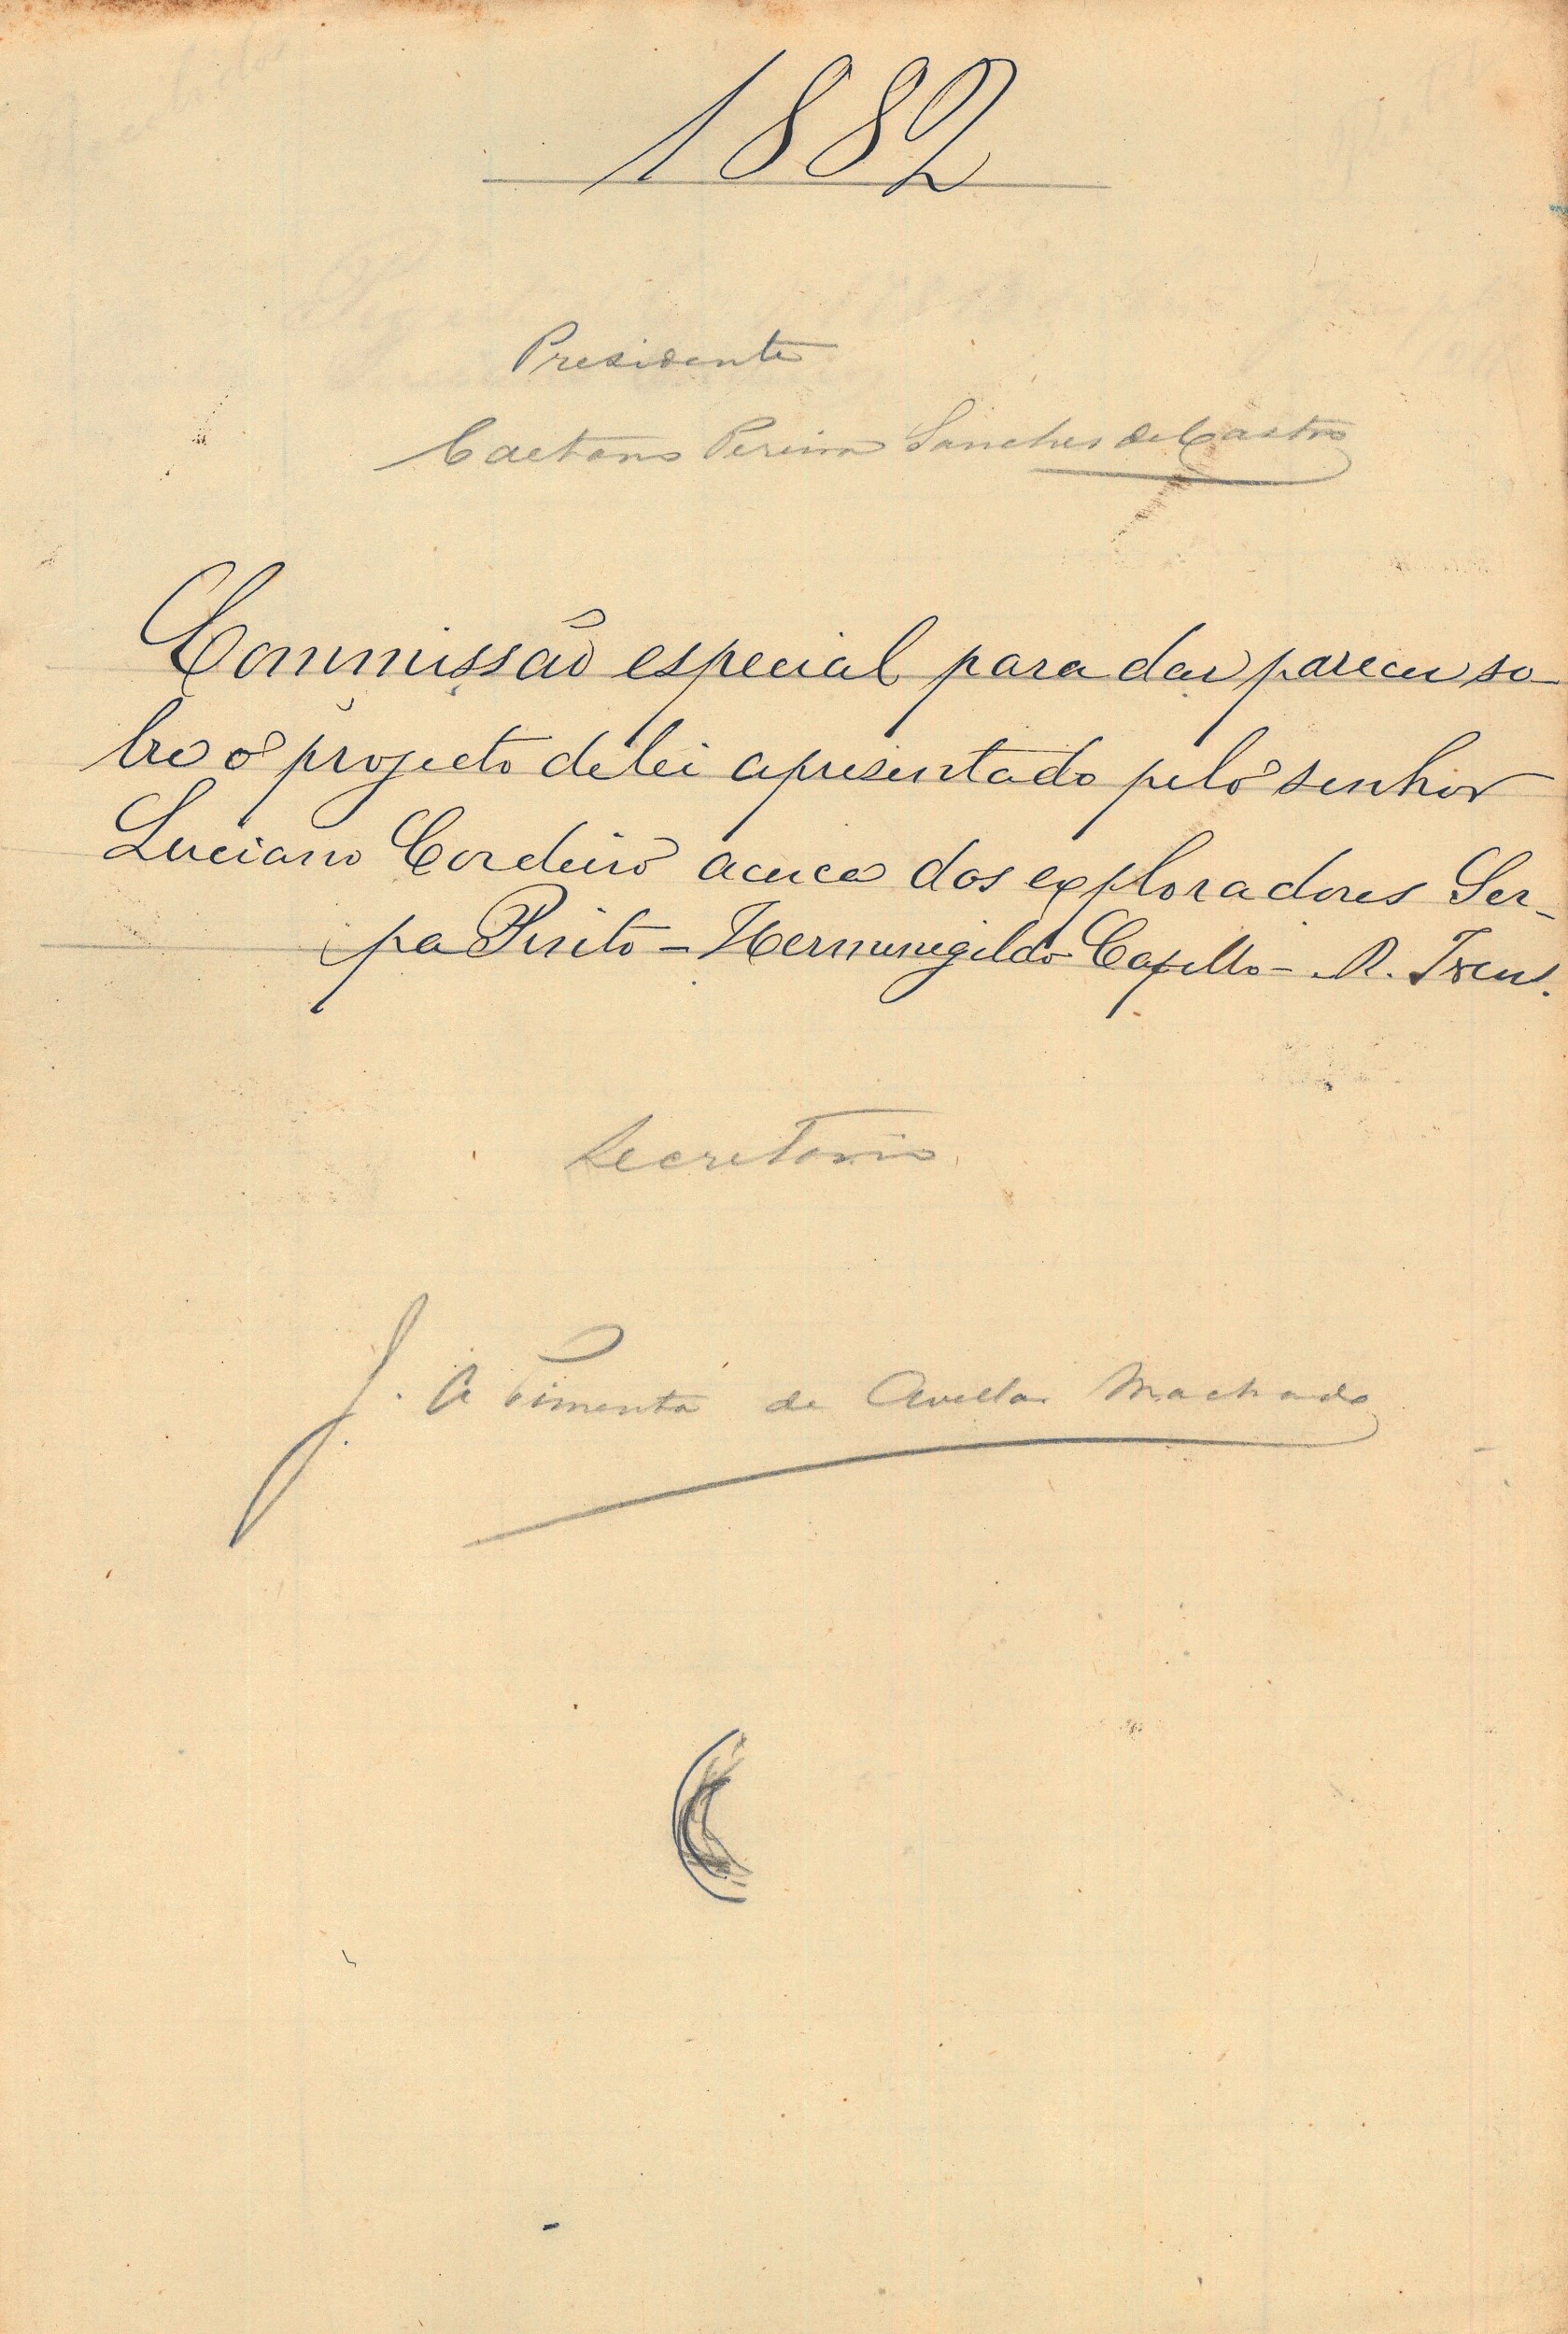 1882
Presidente
Caetano Pereira Sanches de Castro
Commissão especial para dar parecer so-
bre o projecto de lei apresentado pelo senhor
Luciano Cordeiro acerca dos exploradores Ser-
pa Pinto - Hermenegildo Capello - R. Ivens.
Secretario
J. A Pimenta de Avellar Machado